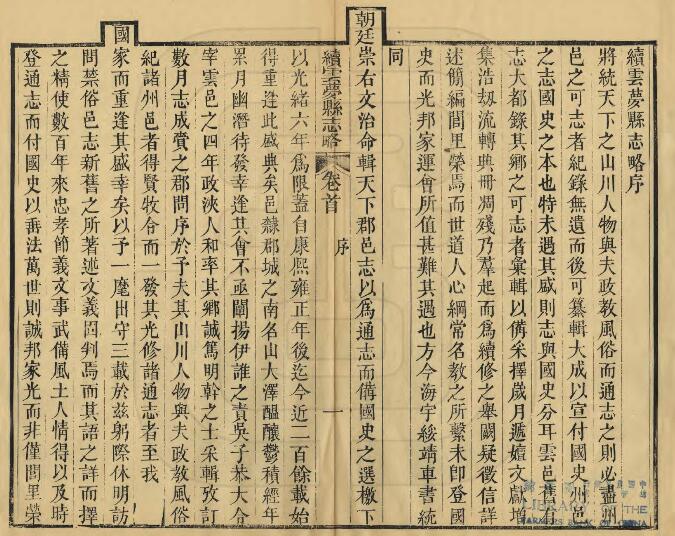 續雲夢縣志略序
將統天下之山川人物與夫政教風俗而通志之則必盡州
邑之可志者紀錄無遺而後可纂輯大成以宣付國史州邑
之志國史之本也特未遇其盛則志與國史分耳雲邑舊有
志大都錄其鄉之可志者彙輯以備采擇歲月遞嬗文獻增
集浩刼流轉典冊凋殘乃羣起而為續修之舉闕疑徵信詳
述簡編閭里榮焉而世道人心綱常名教之所繫未即登國
史而光邦家運會所值甚難其遇也方今海宇綏靖車書統
同
朝廷崇右文治命輯天下郡邑志以為通志而備國史之選檄下
續雲夢縣志略
卷首
序
一
以光緒六年為限蓋自康熙雍正年後迄今近二百餘載始
得重逢此盛典矣邑隸郡城之南名山大澤醞釀鬱積經年
累月幽潛待發幸逢其會不亟闡揚伊誰之責吳子恭大令
宰雲邑之四年政浹人和率其鄉誠篤明幹之士采輯攷訂
數月志成賞之郡問序於予夫其山川人物與夫政教風俗
紀諸州邑者得賢牧令而一發其光修諸通志者至我
國
家而重逢其盛幸矣以予一麾出守三載於兹躬際休明訪
問禁俗邑志新舊之所著述文義因判焉而其語之詳而擇
之精使數百年來忠孝節義文事武備風土人情得以及時
登通志而付國史以垂法萬世則誠邦家光而非僅閭里榮
LIBRARY OF THE
FARMERS BANK OF CHINA